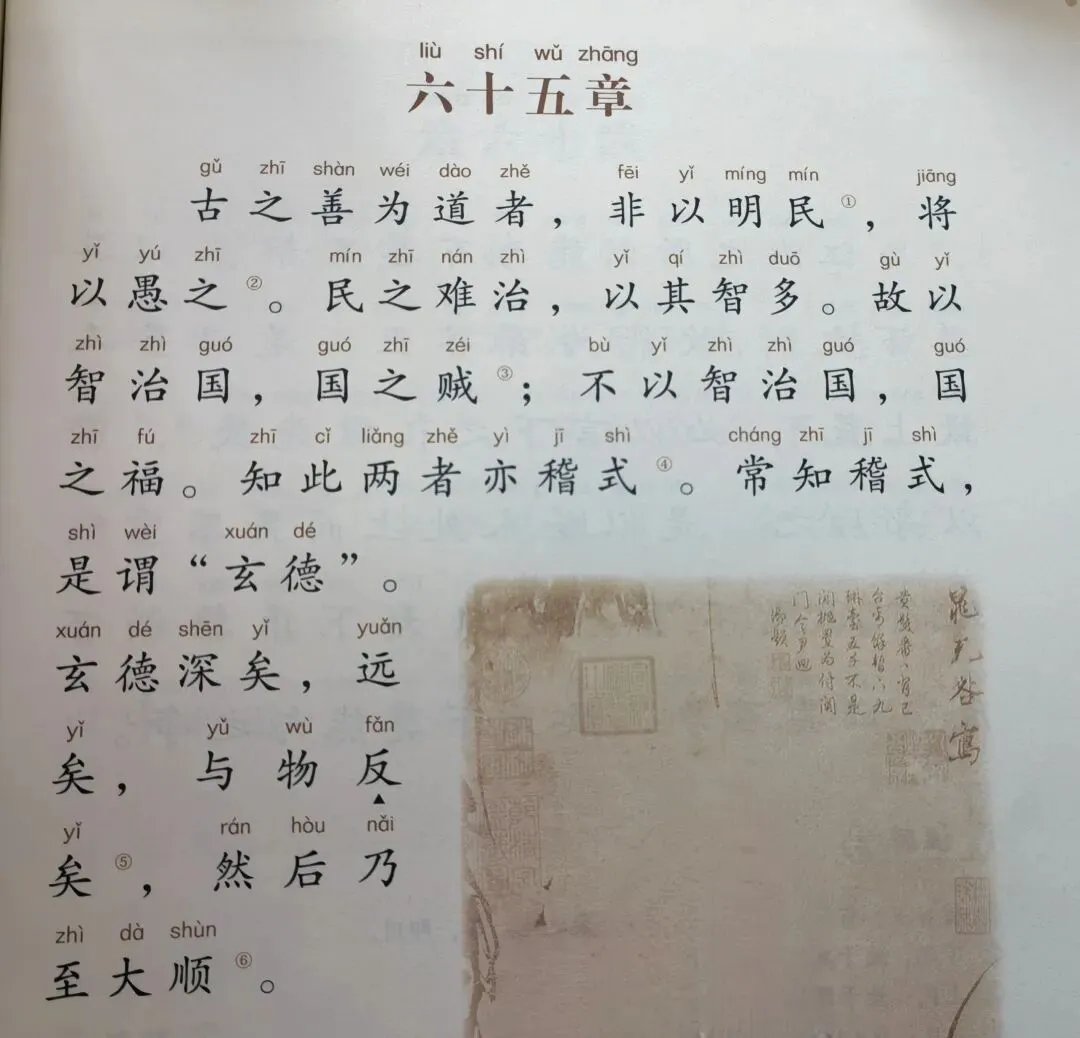 liù shí wǔ zhāng
六十五章
gǔ zhī shàn wéi dào zhě fēi yǐ míng mín jiāng
古之善为道者，非以明民①，将
yǐ yú zhī mín zhī nán zhì yǐ qí zhì duō gù yǐ
以愚之②。民之难治，以其智多。故以
zhì zhì guó guó zhī zéi bù yǐ zhì zhì guó guó
智治国，国之贼③；不以智治国，国
zhī fú zhī cǐ liǎng zhě yì jī shì cháng zhī jī shì
之福。知此两者亦稽式④。常知稽式，
shì wèi xuán dé
是谓“玄德”。
xuán dé shēn yǐ yuǎn
玄德深矣，远
yǐ yǔ wù fǎn
矣，与物反
yǐ rán hòu nǎi
矣⑤，然后乃
zhì dà shùn
至大顺⑥。